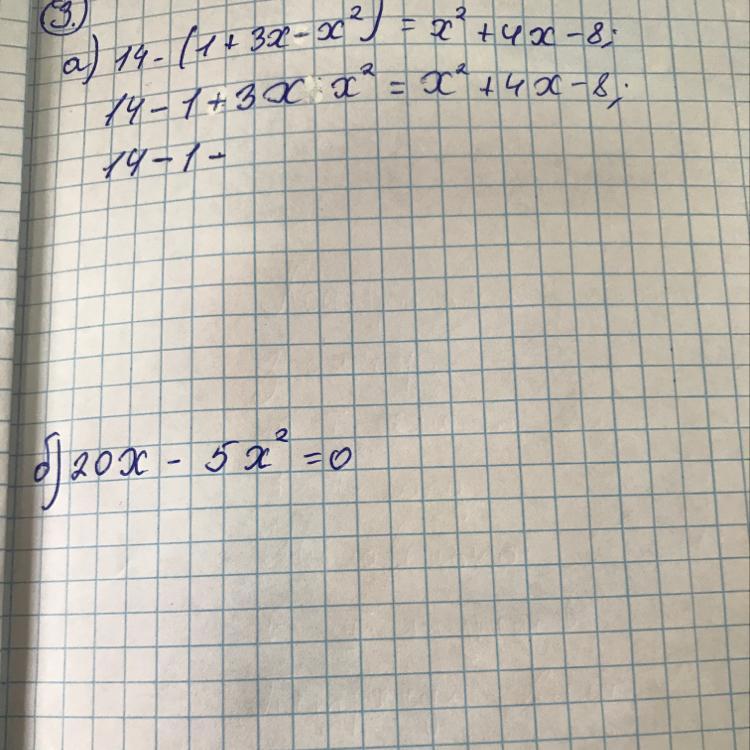 3.
а) 14-(1+3x-x²) = x²+4x-8;
14-1+3x x² = x²+4x-8;
14-1-
б) 20x - 5x² = 0